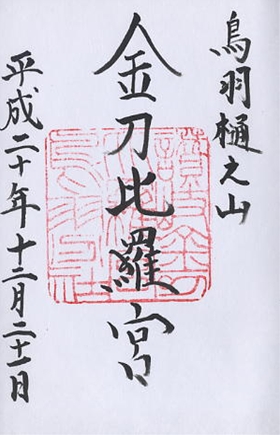 鳥羽樋之山
金刀比羅宮
平成二十年十二月二十一日